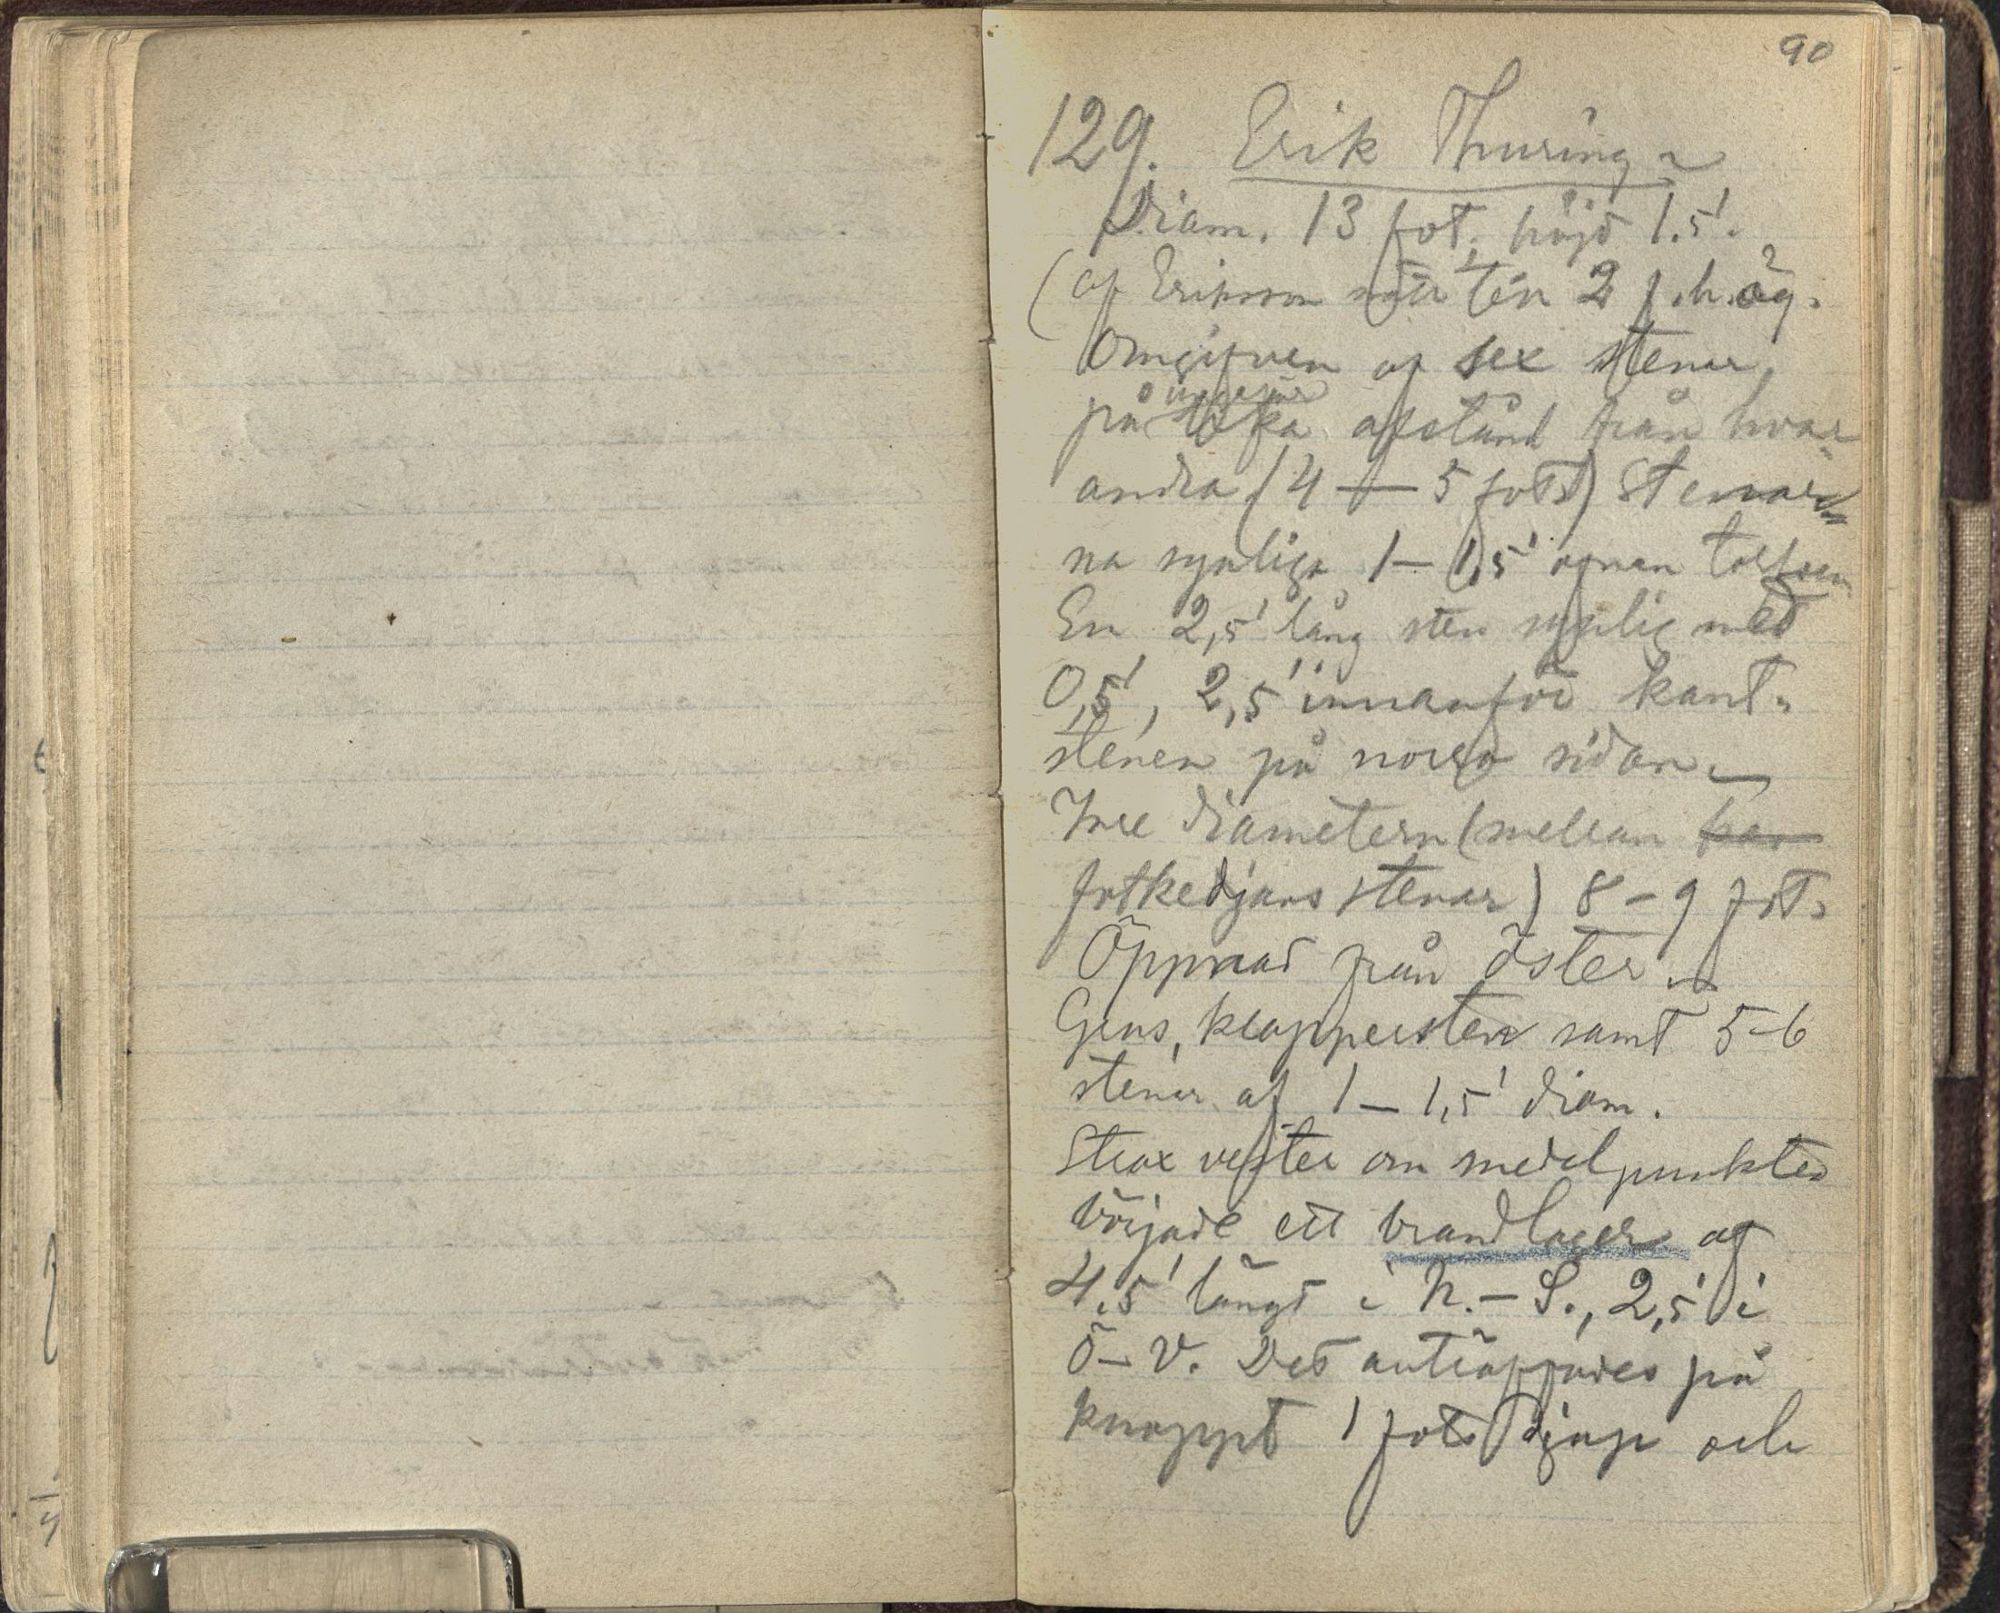 90
129. Erik Thuring
Diam. 13 fot, höjd 1.5'.
(af Eriksson mätten 2 f. hög.
Omgifven af sex stenar,
på ungefär lika afstånd från hvar
andra (4 — 5 fot) Stenar
na synliga 1 — 1,5' ofvan torfven
En 2,5' lång sten synlig med
0,5', 2,5' innanför kant-
stenen på norra sidan.
Inre diametern (mellan kan
fotkedjans stenar) 8 – 9 fot.
Öppnad från öster.
Grus, klappersten samt 5-6
stenar af 1 — 1,5' diam.
Strax vester om medelpunkten
började ett brandlager af
4,5' längd i N. – S., 2,5' i
Ö – V. Det anträffades på
knappt 1 fots djup och